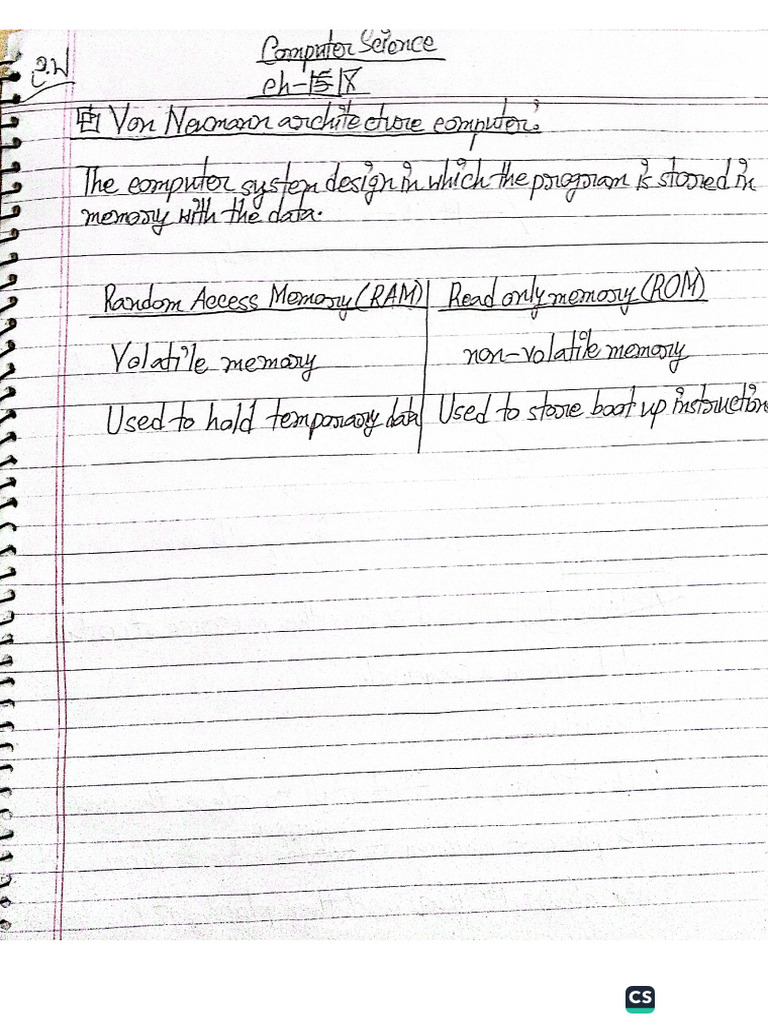 Computer Science
C.W
ch-18
Von Neumann architecture computer:
The computer system design in which the program is stored in
memory with the data.
Random Access Memory (RAM) | Read only memory (ROM)
Volatile memory | non-volatile memory
Used to hold temporary data | Used to store boot up instruction
CS